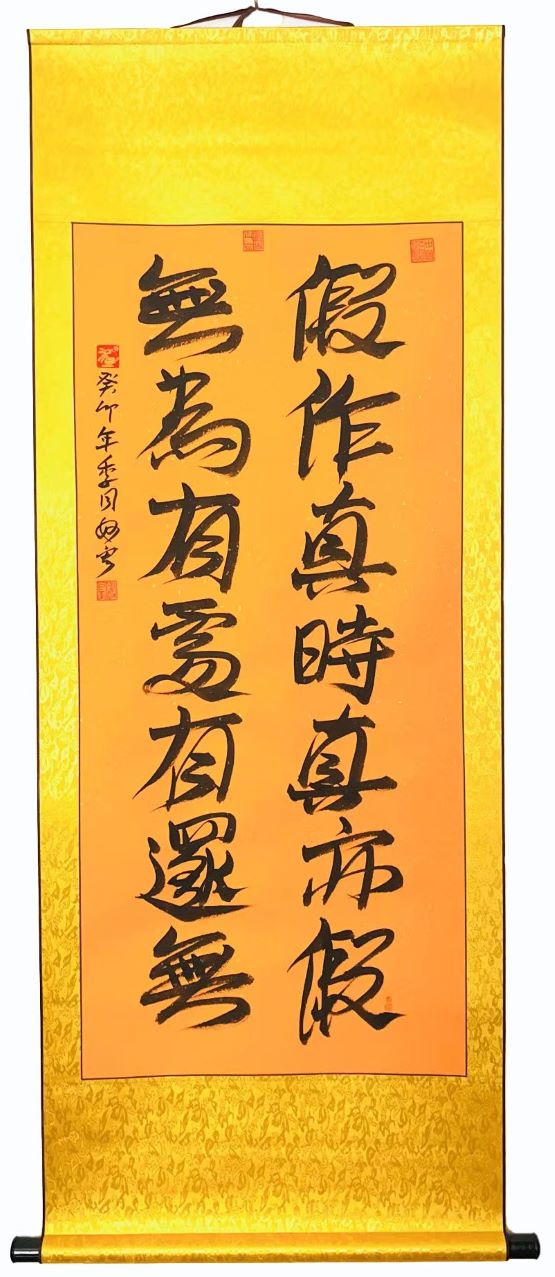 假作真時真亦假
無為有處有還無
癸卯年季月